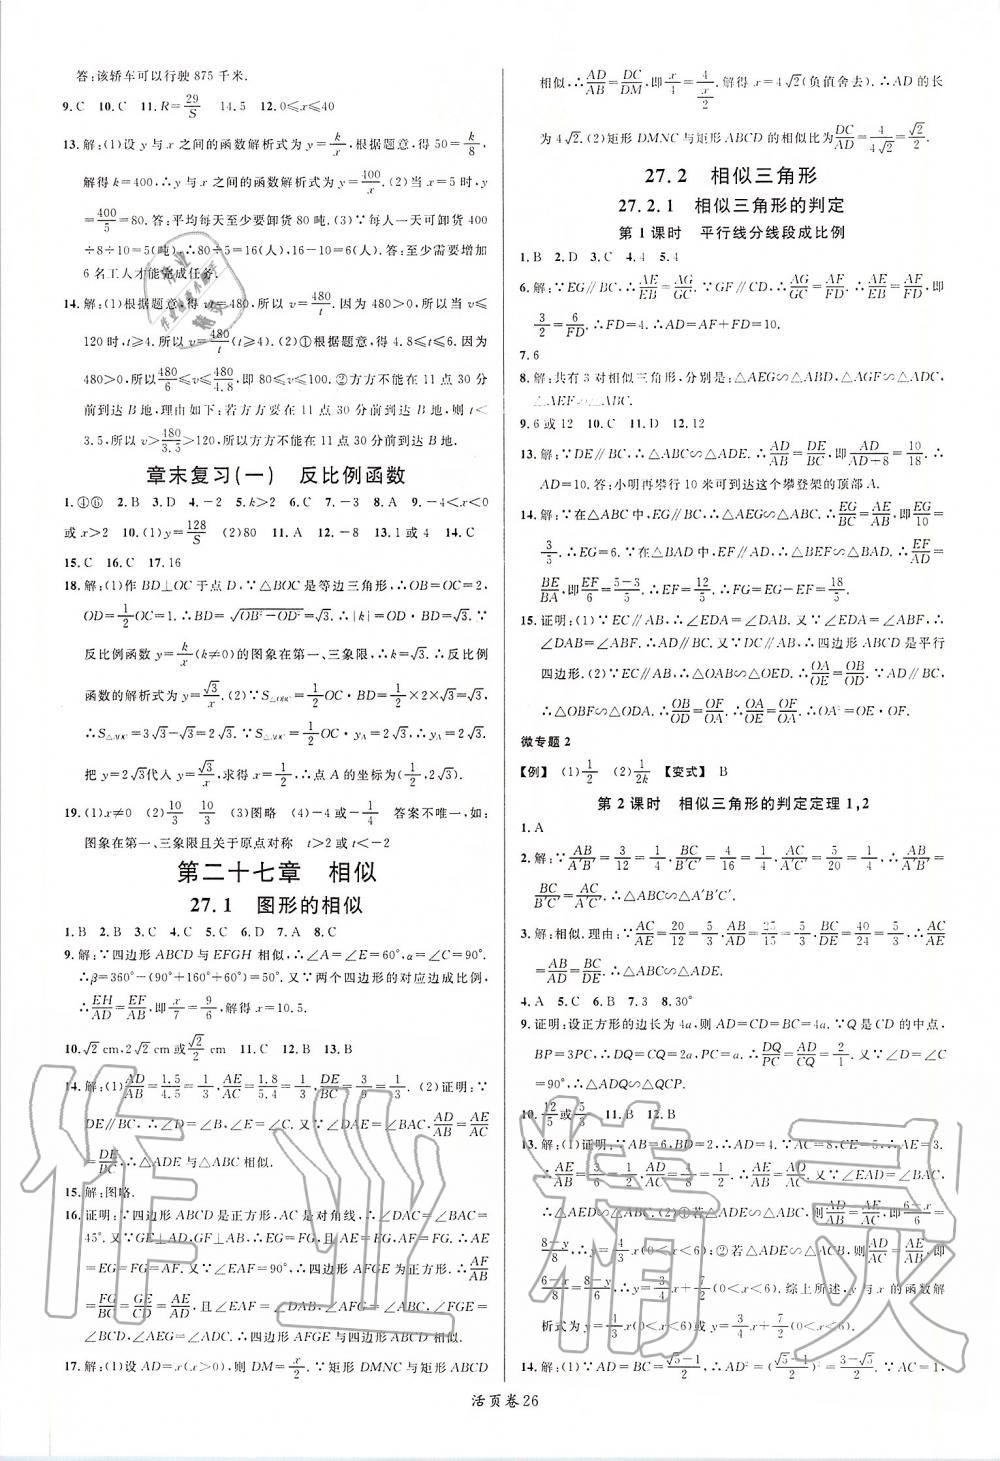 答:该轿车可以行驶 875 千米.
9.C 10.C 11.R=29/S 14.5 12.0≤x≤40
13.解:(1)设 y 与 x 之间的函数解析式为 y=k/x,根据题意,得 50=k/8,
解得 k=400,∴y 与 x 之间的函数解析式为 y=400/x.(2)当 x=5 时,y=
400/5=80.答:平均每天至少要卸货 80 吨.(3)∵每人一天可卸货 400
÷8÷10=5(吨),∴80÷5=16(人).∴16-10=6(人).答:至少需增加
6 名工人才能完成任务.
14.解:(1)根据题意,得 vt=480,所以 v=480/t.因为 480>0,所以当 v≤
120 时,t≥4.所以 v=480/t(t≥4).(2)①根据题意,得 4.8≤t≤6.因为
480>0,所以 480/6≤v≤480/4.8,即 80≤v≤100.②方方不能在 11 点 30 分
前到达 B 地,理由如下:若方方要在 11 点 30 分前到达 B 地,则 t<
3.5,所以 v>480/3.5>120,所以方方不能在 11 点 30 分前到达 B 地.
章末复习(一) 反比例函数
1.④⑥ 2.B 3.D 4.-2 5.k>2 6.C 7.-3 8.A 9.-4<x<0
或 x>2 10.(1)y=128/S (2)80 11.A 12.-8 13.1 或 4 14.C
15.C 16.C 17.16
18.解:(1)作 BD⊥OC 于点 D,∵△BOC 是等边三角形,∴OB=OC=2,
OD=1/2OC=1.∴BD=√(OB²-OD²)=√3.∴|k|=√3.∵
反比例函数 y=k/x(k≠0)的图象在第一、三象限,∴k=√3.∴反比例
函数的解析式为 y=√3/x.(2)∵S△OBC=1/2OC·BD=1/2×2×√3=√3.
∴S△AOC=3√3-√3=2√3.∵S△AOC=1/2OC·yA=2√3.∴yA=2√3.
把 y=2√3代入 y=√3/x,求得 x=1/2.∴点 A 的坐标为(1/2,2√3).
19.(1)x≠0 (2)10/3 10/3 (3)图略 (4)-4或-1/4 答案不唯一,如:
图象在第一、三象限且关于原点对称 t>2 或 t<-2
第二十七章 相似
27.1 图形的相似
1.B 2.B 3.D 4.C 5.C 6.D 7.A 8.C
9.解:∵四边形 ABCD 与 EFGH 相似,∴∠A=∠E=60°,α=∠C=90°.
∴β=360°-(90°+160°+60°)=50°.又∵两个四边形的对应边成比例,
∴EH/AD=EF/AB,即x/7=9/6,解得 x=10.5.
10.√2 cm,2√2 cm 或√2/2 cm 11.C 12.B 13.B
14.解:(1)AD/AB=1.5/4.5=1/3,AE/AC=1.8/5.4=1/3,DE/BC=1/3.(2)证明:∵
DE∥BC,∴∠D=∠B,∠E=∠C.又∵∠DAE=∠BAC,AD/AB=AE/AC
=DE/BC,∴△ADE 与△ABC 相似.
15.解:图略.
16.证明:∵四边形 ABCD 是正方形,AC 是对角线,∴∠DAC=∠BAC=
45°.又∵GE⊥AD,GF⊥AB,∴EG=EA=AF=FG,
又∵∠EAF=90°,∴四边形 AFGE 为正方形.∴AF/AB
=FG/BC=GE/CD=AE/AD,且∠EAF=∠DAB,∠AFG=∠ABC,∠FGE=
∠BCD,∠AEG=∠ADC.∴四边形 AFGE 与四边形 ABCD 相似.
17.解:(1)设 AD=x(x>0),则 DM=x/2.∵矩形 DMNC 与矩形 ABCD
相似,∴AD/AB=DC/DM,即x/4=4/(x/2).解得 x=4√2(负值舍去).∴AD 的长
为 4√2.(2)矩形 DMNC 与矩形 ABCD 的相似比为DC/AD=4/4√2=√2/2.
27.2 相似三角形
27.2.1 相似三角形的判定
第 1 课时 平行线分线段成比例
1.B 2.D 3.C 4.4 5.4
6.解:∵EG∥BC,∴AE/EB=AG/GC.∵GF∥CD,∴AG/GC=AF/FD.∴AE/EB=AF/FD,即
3/2=6/FD.∴FD=4.∴AD=AF+FD=10.
7.6
8.解:共有 3 对相似三角形,分别是:△AEG∽△ABD,△AGF∽△ADC,
△AEF∽△ABC.
9.6 或 12 10.C 11.D 12.12
13.解:∵DE∥BC,∴△ADE∽△ABC.∴AD/AB=DE/BC,即AD/(AD+8)=10/18.∴
AD=10.答:小明再攀行 10 米可到达这个攀登架的顶部 A.
14.解:∵在△ABC 中,EG∥BC,∴△AEG∽△ABC.∴EG/BC=AE/AB,即EG/10=
3/5.∴EG=6.∵在△BAD 中,EF∥AD,∴△BEF∽△BAD.∴EF/AD=
BE/BA,即EF/6=(5-3)/5.∴EF/6=2/5.∴EF=12/5.∴FG=EG-EF=18/5.
15.证明:(1)∵EC∥AB,∴∠EDA=∠DAB.又∵∠EDA=∠ABF,∴
∠DAB=∠ABF.∴AD∥BC.又∵DC∥AB,∴四边形 ABCD 是平行
四边形.(2)∵EC∥AB,∴△OAB∽△OED.∴OA/OE=OB/OD.∵AD∥BC,
∴△OBF∽△ODA.∴OB/OD=OF/OA.∴OA/OE=OF/OA.∴OA²=OE·OF.
微专题 2
【例】 (1)1/2 (2)1/2k 【变式】 B
第 2 课时 相似三角形的判定定理 1,2
1.A
2.解:∵AB/A′B′=3/12=1/4,BC/B′C′=4/16=1/4,AC/A′C′=5/20=1/4,∴AB/A′B′=
BC/B′C′=AC/A′C′.∴△ABC∽△A′B′C′.
3.解:相似.理由:∵AC/AE=20/12=5/3,AB/AD=25/15=5/3,BC/DE=40/24=5/3,∴AC/AE
=AB/AD=BC/DE.∴△ABC∽△ADE.
4.A 5.C 6.B 7.3 8.30°
9.证明:设正方形的边长为 4a,则 AD=CD=BC=4a.∵Q 是 CD 的中点,
BP=3PC,∴DQ=CQ=2a,PC=a.∴DQ/PC=AD/CQ=2/1.又∵∠D=∠C
=90°,∴△ADQ∽△QCP.
10.12/5或5/3 11.B 12.B
13.解:(1)证明:∵AB=6,BD=2,∴AD=4.∵AC=8,CE=5,∴AE=3.
∴AE/AB=3/6=1/2,AD/AC=4/8=1/2.∴AE/AB=AD/AC.又∵∠EAD=∠BAC,
∴△AED∽△ABC.(2)①若△ADE∽△ABC,则AD/AB=AE/AC,即(6-x)/6=
(8-y)/8.∴y=4/3x(0<x<6);②若△ADE∽△ACB,则AD/AC=AE/AB,即
(6-x)/8=(8-y)/6.∴y=3/4x+7/2(0<x<6).综上所述,y 与 x 的函数解
析式为 y=4/3x(0<x<6)或 y=3/4x+7/2(0<x<6).
14.解:(1)∵AD=BC=(√5-1)/2,∴AD²=((√5-1)/2)²=(3-√5)/2.∵AC=1,
活页卷 26
作业精灵